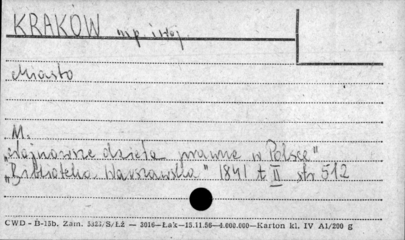 KRAKÓW mp. i woj.
Miasto
M.
„Najnowsze dzieła prawne w Polsce"
„Biblioteka Warszawska" 1841 t II str 512
CWD - B-15b. Zam. /S/Łż — 2016—Łak—15.11.56—4.000.000—Karton kl. IV A1/200 g